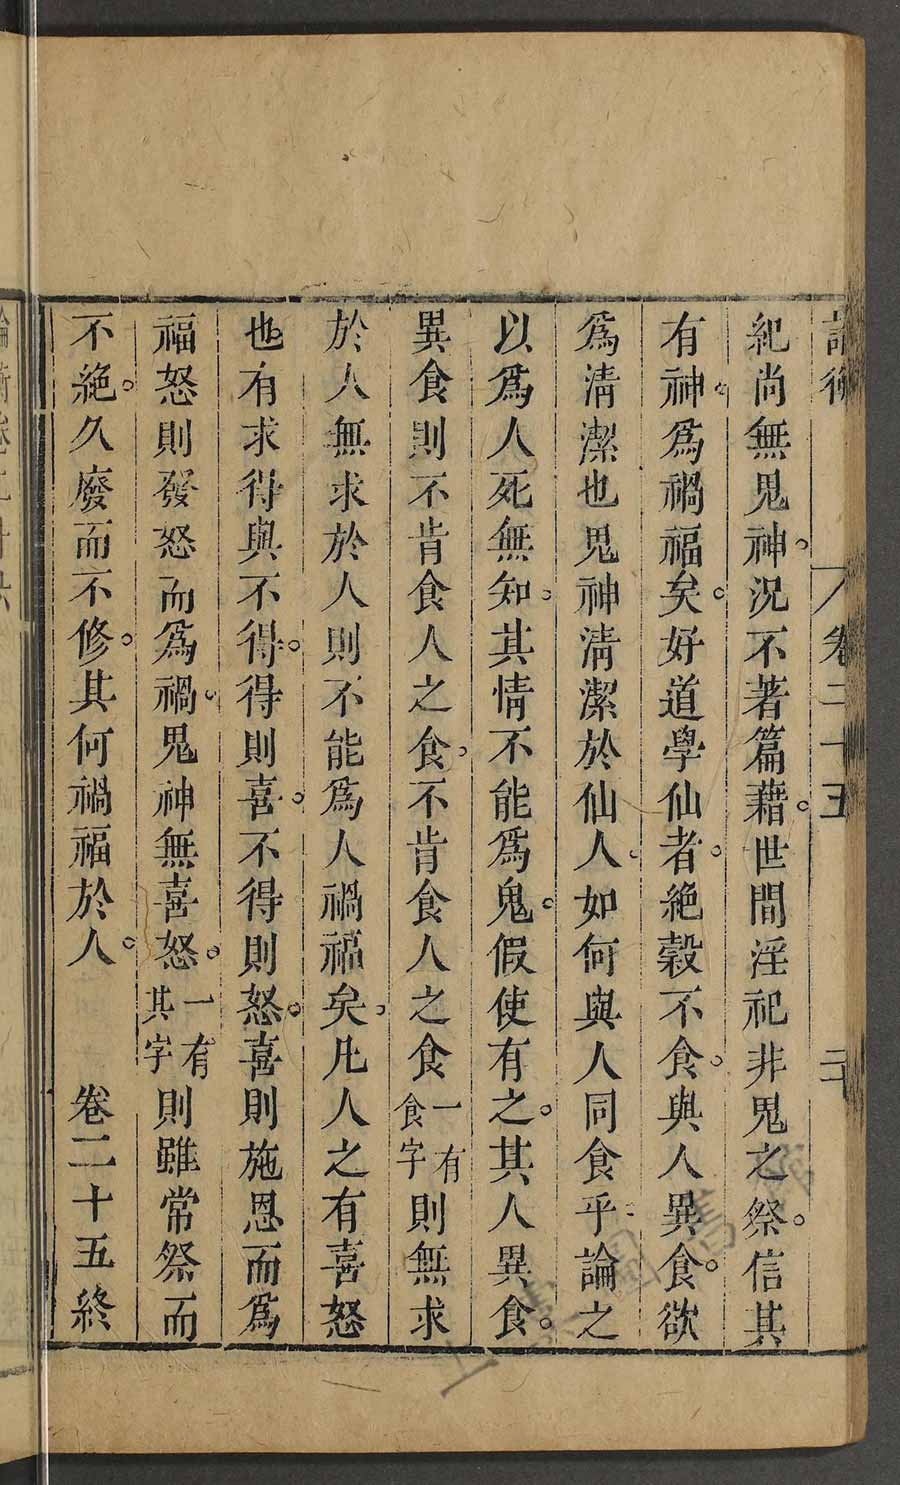 論衡 卷二十五 二十
紀尚無鬼神。況不著篇藉。世間淫祀非鬼之祭。信其
有神。爲禍福矣。好道學仙者。絶穀不食。與人異食。欲
爲清潔也鬼神清潔於仙人。如何與人同食乎論之
以爲人死無知。其情不能爲鬼。假使有之。其人異食。
異食則不肯食人之食。不肯食人之食一有食字則無求
於人無求於人則不能爲人禍福矣。凡人之有喜怒
也有求得與不得。得則喜。不得則怒。喜則施恩而爲
福怒則發怒而爲禍。鬼神無喜怒。一有其字則雖常祭而
不絶。久廢而不修。其何禍福於人。 卷二十五終